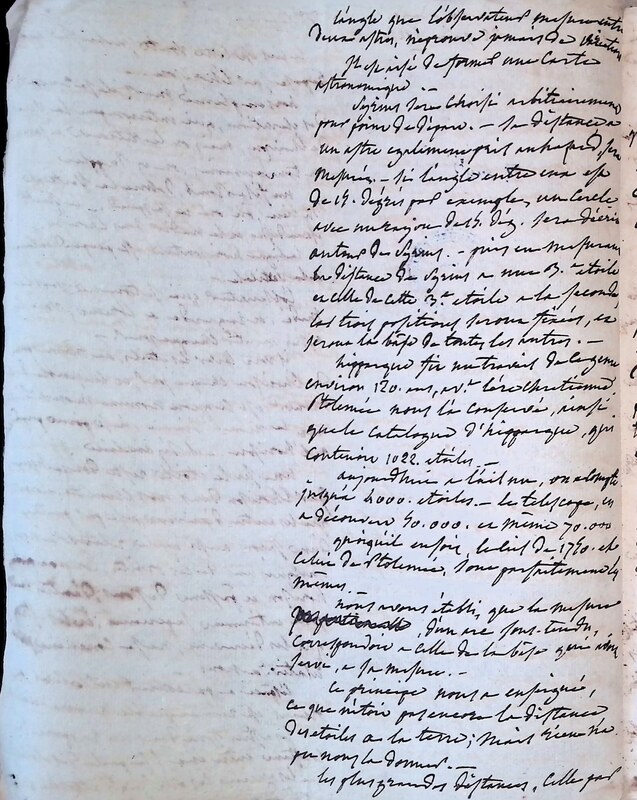 l'angle que l'observateur mesure entre
deux astres, n'eprouve jamais de variation
Il est aisé de former une Carte
astronomique. —
Syrius sera choisi arbitrairement
pour point de départ. — sa distance a
un astre egalement pris au hasard, sera
mesurée. — si l'angle entre eux est
de 15. degrés par exemple, un Cercle
avec un rayon de 15. deg. sera décrit
autour de Syrius. — puis en mesurant
la distance de Syrius a une 3.e etoile
et celle de cette 3.e etoile a la seconde
les trois positions seront fixées, et
seront la base de toutes les autres. —
hipparque fit un travail de ce genre
environ 120. ans, av.t l'ére chretienne
Ptolemée nous l'a conservé, ainsi
que le catalogue d'hipparque, qui
contenoit 1022. etoiles. —
aujourdhui a l'œil nu, on a compté
jusqu'a 4000. etoiles. — le telescope, en
a découvert 50.000. et même 70.000
quoiqu'il en soit, le ciel de 1750. et
celui de Ptolemée, sont parfaitement les
mêmes. —
nous avons établi, que la mesure
d'un arc sous-tendu,
correspondoit a celle de la base qui a
servi, a sa mesure. —
Ce principe nous a enseigné,
ce que n'étoit pas encore la distance
des etoiles a la terre; mais rien n'a
pu nous la donner. —
les plus grandes distances, celle par